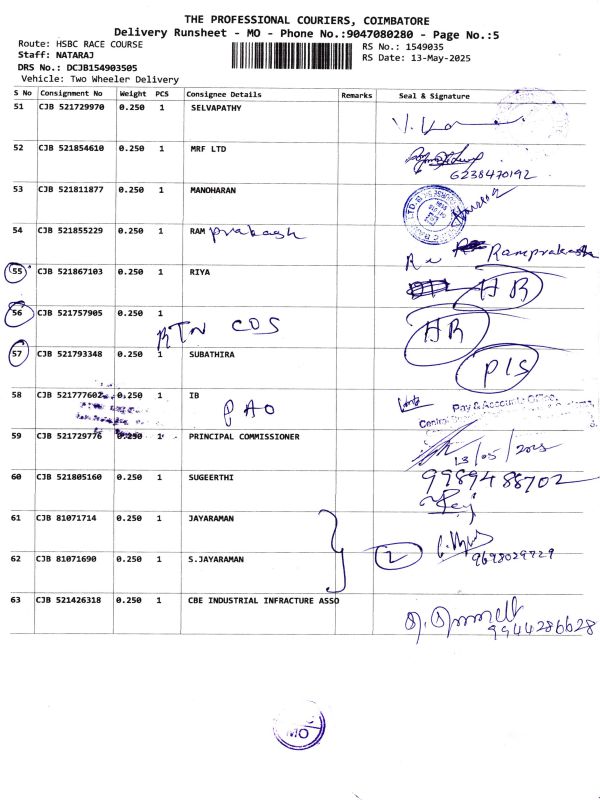 THE PROFESSIONAL COURIERS, COIMBATORE
Delivery Runsheet - MO - Phone No.:9047080280 - Page No.:5
Route: HSBC RACE COURSE
RS No.: 1549035
Staff: NATARAJ
RS Date: 13-May-2025
DRS No.: DCJB154903505
Vehicle: Two Wheeler Delivery
S No Consignment No Weight PCS Consignee Details Remarks Seal & Signature
51 CJB 521729970 0.250 1 SELVAPATHY
52 CJB 521854610 0.250 1 MRF LTD
6238470192
53 CJB 521811877 0.250 1 MANOHARAN
54 CJB 521855229 0.250 1 RAM prakash
Ramprakash
55 CJB 521867103 0.250 1 RIYA HR
56 CJB 521757905 0.250 1 HR
RTN CDS
57 CJB 521793348 0.250 1 SUBATHIRA P1S
58 CJB 521777602 0.250 1 IB
PAO
Pay & Accounts Office,
Central
59 CJB 521729776 0.250 1 PRINCIPAL COMMISSIONER
13/05/2025
60 CJB 521805160 0.250 1 SUGEERTHI 9989488702
61 CJB 81071714 0.250 1 JAYARAMAN
62 CJB 81071690 0.250 1 S.JAYARAMAN 2 9698029729
63 CJB 521426318 0.250 1 CBE INDUSTRIAL INFRACTURE ASSO
9944286628
MO